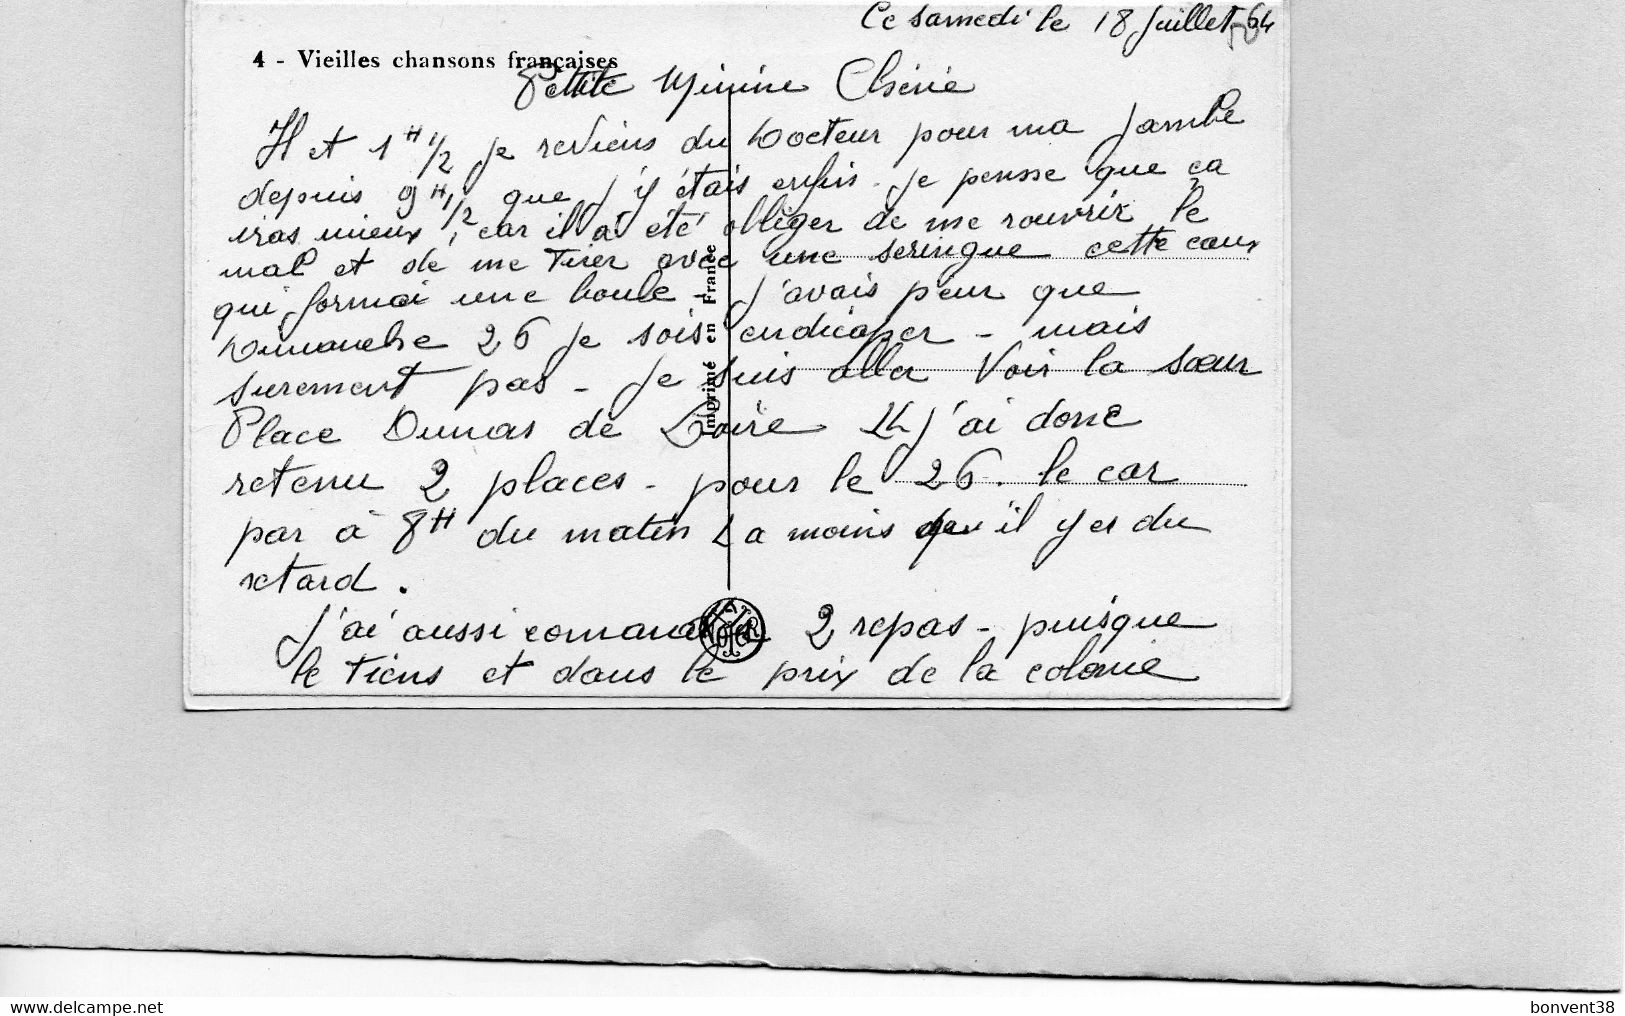 Ce samedi le 18 Juillet 64
4 - Vieilles chansons françaises
Petite Minine Chérie
Il et 1 H 1/2 je reviens du Docteur pour ma Jambe
depuis 9 H 1/2 que j'y étais enfin - je pensse que ça
iras mieux, car il a été obliger de me rouvrir le
mal et de me Tirer avec une seringue cette eau
qui formai une boule - J'avais peur que
Dimanche 26 je sois endicaper - mais
surement pas - je suis aller Voir la sœur
Place Dumas de Loire j'ai donc
retenu 2 places - pour le 26. le car
par à 8 H du matin a moins qu'il y es du
retard.
J'ai aussi comander 2 repas - puisque
le Tiens et dans le prix de la colonie
Imprimé en France
bonvent38
www.delcampe.net